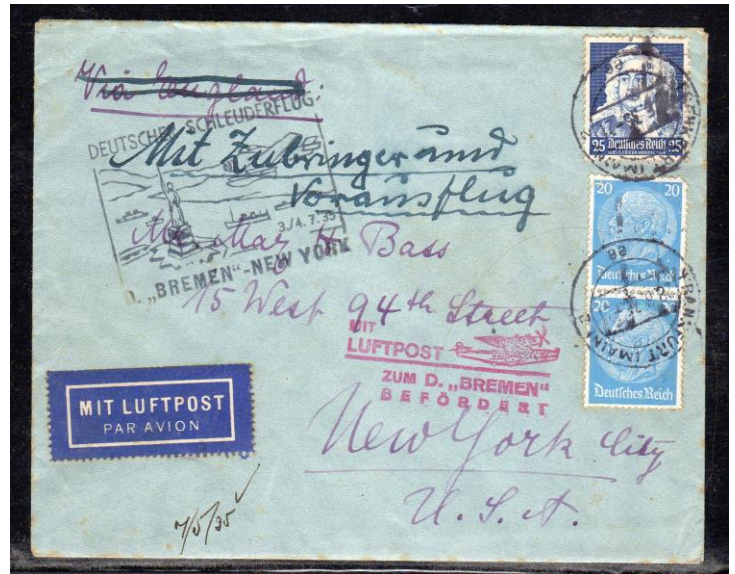 Via England.
DEUTSCHER SCHLEUDERFLUG
Mit Zubringer und
Vorausflug
3./4.7.35
D. „BREMEN“-NEW YORK
Mr. Max H Bass
15 West 94th Street
MIT
LUFTPOST
ZUM D. „BREMEN“
BEFÖRDERT
New York City
U. S. A.
MIT LUFTPOST
PAR AVION
7/5/35
25 Deutsches Reich 25
20 20
Deutsches Reich
20
Deutsches Reich
FRANKFURT (MAIN)